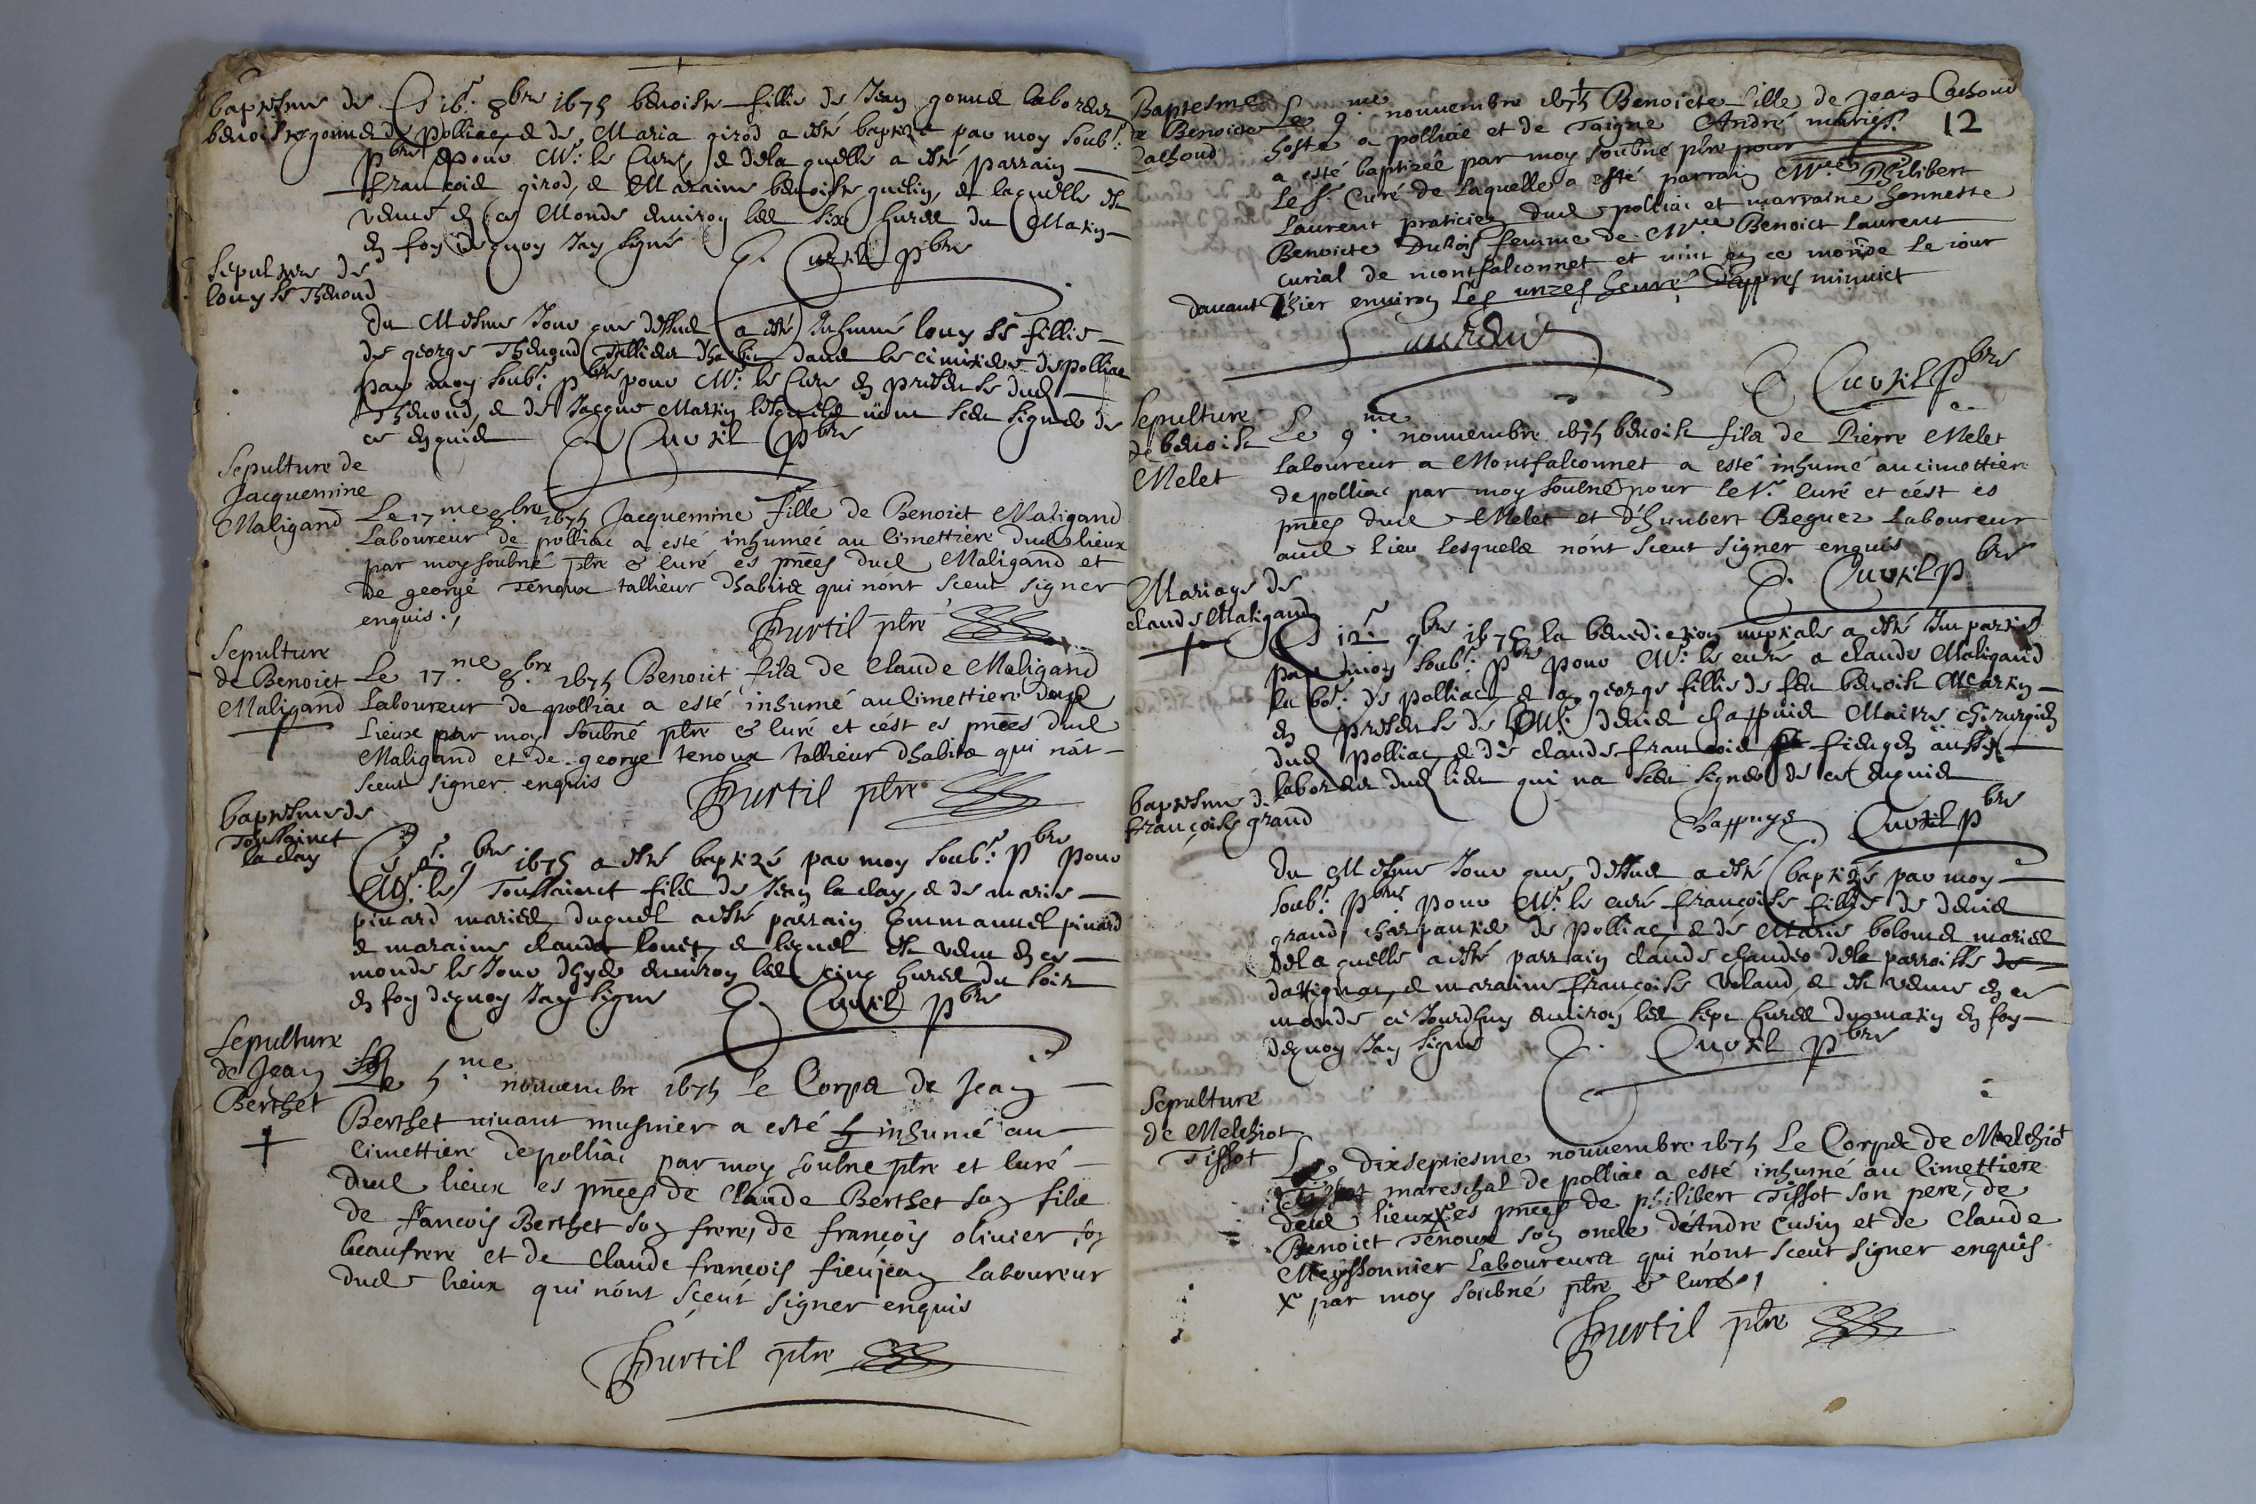 baptesme de
benoiste gonnet
Le 16e 8bre 1675 benoiste fillie de Jean gonnet laboreur
de polliac e de Maria girod a esté baptizé par moy soubt:
pbre pour Mr: le Curé e de laquelle a esté parrain
francoid girod, e Maraine benoiste guelin, et laquelle est
venue en ce Monde environ les six hures du Matin
en foy de quoy Jay signé C. Curtil pbre
sepulture de
louysse Thenoud
Du Mesme Jour que dessus a esté Inhumé louysse fillie
de george Thenoud Tallieur dhabis dans le cimitiere de polliac
par moy soubt: pbre pour Mr: le Cure en presense dud
Thenoud, e de Jacque Martin lesquels nont sceu signer de
ce enquis C. Curtil pbre
Sepulture de
Jacquemine
Maligand
Le 17me 8bre 1675 Jacquemine fille de Benoict Maligand
Laboureur de polliac a esté inhumée au Cimettiere dud lieux
par moy soubné ptre & Curé es pnces dud Maligand et
de george Tenoux tallieur dhabits qui nónt sceut signer
enquis.
Burtil ptre
Sepulture
de Benoict
Maligand
Le 17.me 8.bre 1675 Benoict fils de Claude Maligand
Laboureur de polliac a esté inhumé au Cimettiere dud
Lieux par moy soubné ptre & Curé et cést es pnces dud
Maligand et de george tenoux tallieur dhabits qui nat
sceut signer enquis Burtil ptre
baptesme de
Toussainct
laclay
Le 2e 9bre 1675 a esté baptizé par moy soubt: pbre pour
Mr: le Toussainct fils de Jean laclay, e de marie
pinard mariés duquel a esté parrain Emmanuel pinard
e maraine claude louet, e lequel est venu en ce
monde le Jour dhyer environ les cinq hures du soir
en foy dequoy Jay signe C. Curtil pbre
Sepulture
de Jean
Berthet
Le 5.me nouvembre 1675 le Corps de Jean
Berthet vivant musnier a esté inhumé au
Cimettiere de polliac par moy soubne ptre et Curé
dud lieux es pnces de Claude Berthet son fils
de francois Berthet son frere, de françois olivier son
beaufrere et de Claude francois fieujean Laboureur
dud lieux qui nónt sçeut signer enquis
Burtil ptre
12
Baptesme
de Benoicte
Cachoud
Le 9.me nouvembre 1675 Benoicte fille de Jean Cachoud
hoste a polliac et de Taigne André mariés.
a esté baptizée par moy soubné ptre pour
le sr. Curé de laquelle a esté parrain Mre Philibert
Laurent praticien dud polliac et marraine honneste
Benoicte Dubois femme de Mre Benoict Laurent
Curial de montfalconnet et vint en ce monde le iour
davant hier environ les unzes heures dappres minuict
Laurent
C. Curtil pbre
Sepulture
de benoist
Melet
Le 9.me nouvembre 1675 benoist fils de Pierre Melet
Laboureur a Montfalconnet a esté inhumé au cimettiere
de polliac par moy soubné pour le sr. Curé et cést es
pnces dud Melet et d'humbert Beguez Laboureur
aud Lieu lesquels nónt sceut signer enquis
C. Curtil pbre
Mariage de
claude Maligand
Le 12e 9bre 1675 la benediction nuptiale a esté Impartie
par moy soubt: pbre pour Mr: le curé a claude Maligand
labor: de polliac, e a george fillie de feu benoist Martin
en presense de Mr: denis chappuis Maitre chirurgien
dud polliac, e de claude francois fieugen aussi
laboreur dud lieu qui na sceu signer de ce enquis
Chappuys Curtil pbre
baptesme de
françoise grand
Du Mesme Jour que dessus a esté baptizé par moy
soubt: pbre pour Mr: le curé françoise fillie de denis
grand charpantier de polliac e de Marie bolomet mariés
de laquelle a esté parrain claude chandeo de la parroisse
dattignac, e maraine françoise voland, e est venue en ce
monde ce Jourdhuy environ les sept hures du matin en foy
dequoy Jay signé C. Curtil pbre
Sepulture
de Melchiot
Tissot
Le dixsepttiesme nouvembre 1675 Le Corps de Melchiot
Tissot mareschal de polliac a esté inhumé au Cimettiere
dud lieux X es pnces de philibert Tissot son pere, de
Benoict Tenoux son oncle de Andre Cusin et de Claude
Meyssonnier Laboureurs qui nónt sceut signer enquis
X par moy soubné ptre & Curé
Burtil ptre